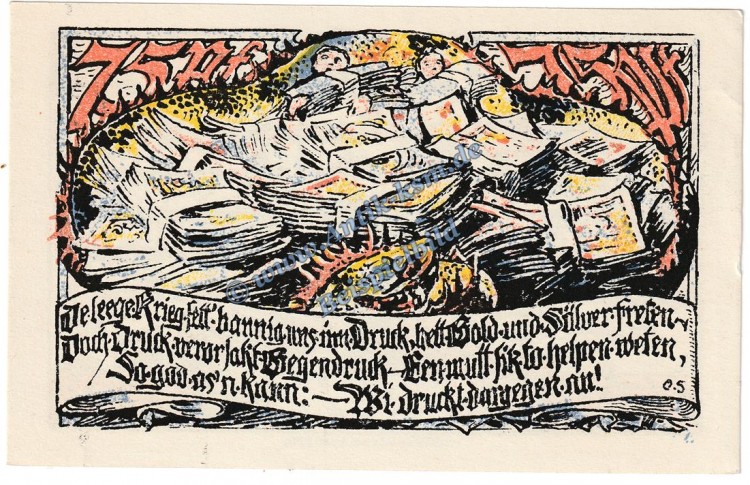 75 Pf 75 Pf
© www.Antik-kom.de
Beispielbild
De leege Krieg sett bannig uns inn Druck, hett Gold und Silver freten
Doch Druck verorsakt Gegendruck – Een mutt sik to helpen weten,
So god as 'n kann: – Wi druckt dargegen an!
O.S